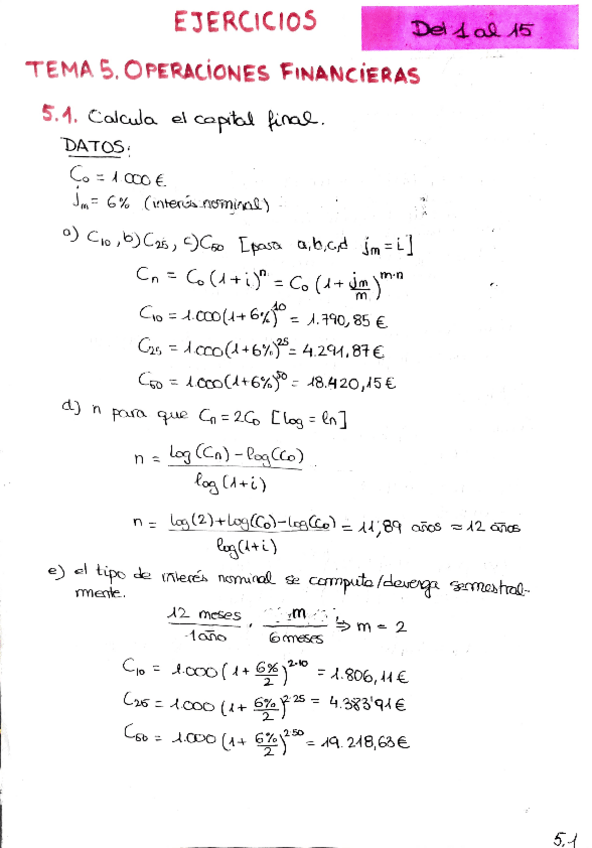 EJERCICIOS
Del 1 al 15
TEMA 5. OPERACIONES FINANCIERAS
5.1. Calcula el capital final.
DATOS:
C₀ = 1.000 €
jm = 6% (interés nominal)
a) C₁₀, b) C₂₅, c) C₅₀ [para a,b,c,d jm = i]
Cn = C₀ (1+i)^n = C₀ (1 + jm/m)^m·n
C₁₀ = 1.000 (1+6%)^10 = 1.790,85 €
C₂₅ = 1.000 (1+6%)^25 = 4.291,87 €
C₅₀ = 1.000 (1+6%)^50 = 18.420,15 €
d) n para que Cn = 2C₀ [log = ln]
n = log(Cn) - log(C₀) / log(1+i)
n = log(2) + log(C₀) - log(C₀) / log(1+i) = 11,89 años ≈ 12 años
e) el tipo de interés nominal se computa/devenga semestral-
mente.
12 meses / 1 año · m / 6 meses ⇒ m = 2
C₁₀ = 1.000 (1 + 6%/2)^2·10 = 1.806,11 €
C₂₅ = 1.000 (1 + 6%/2)^2·25 = 4.383'91 €
C₅₀ = 1.000 (1 + 6%/2)^2·50 = 19.218,63 €
5.1